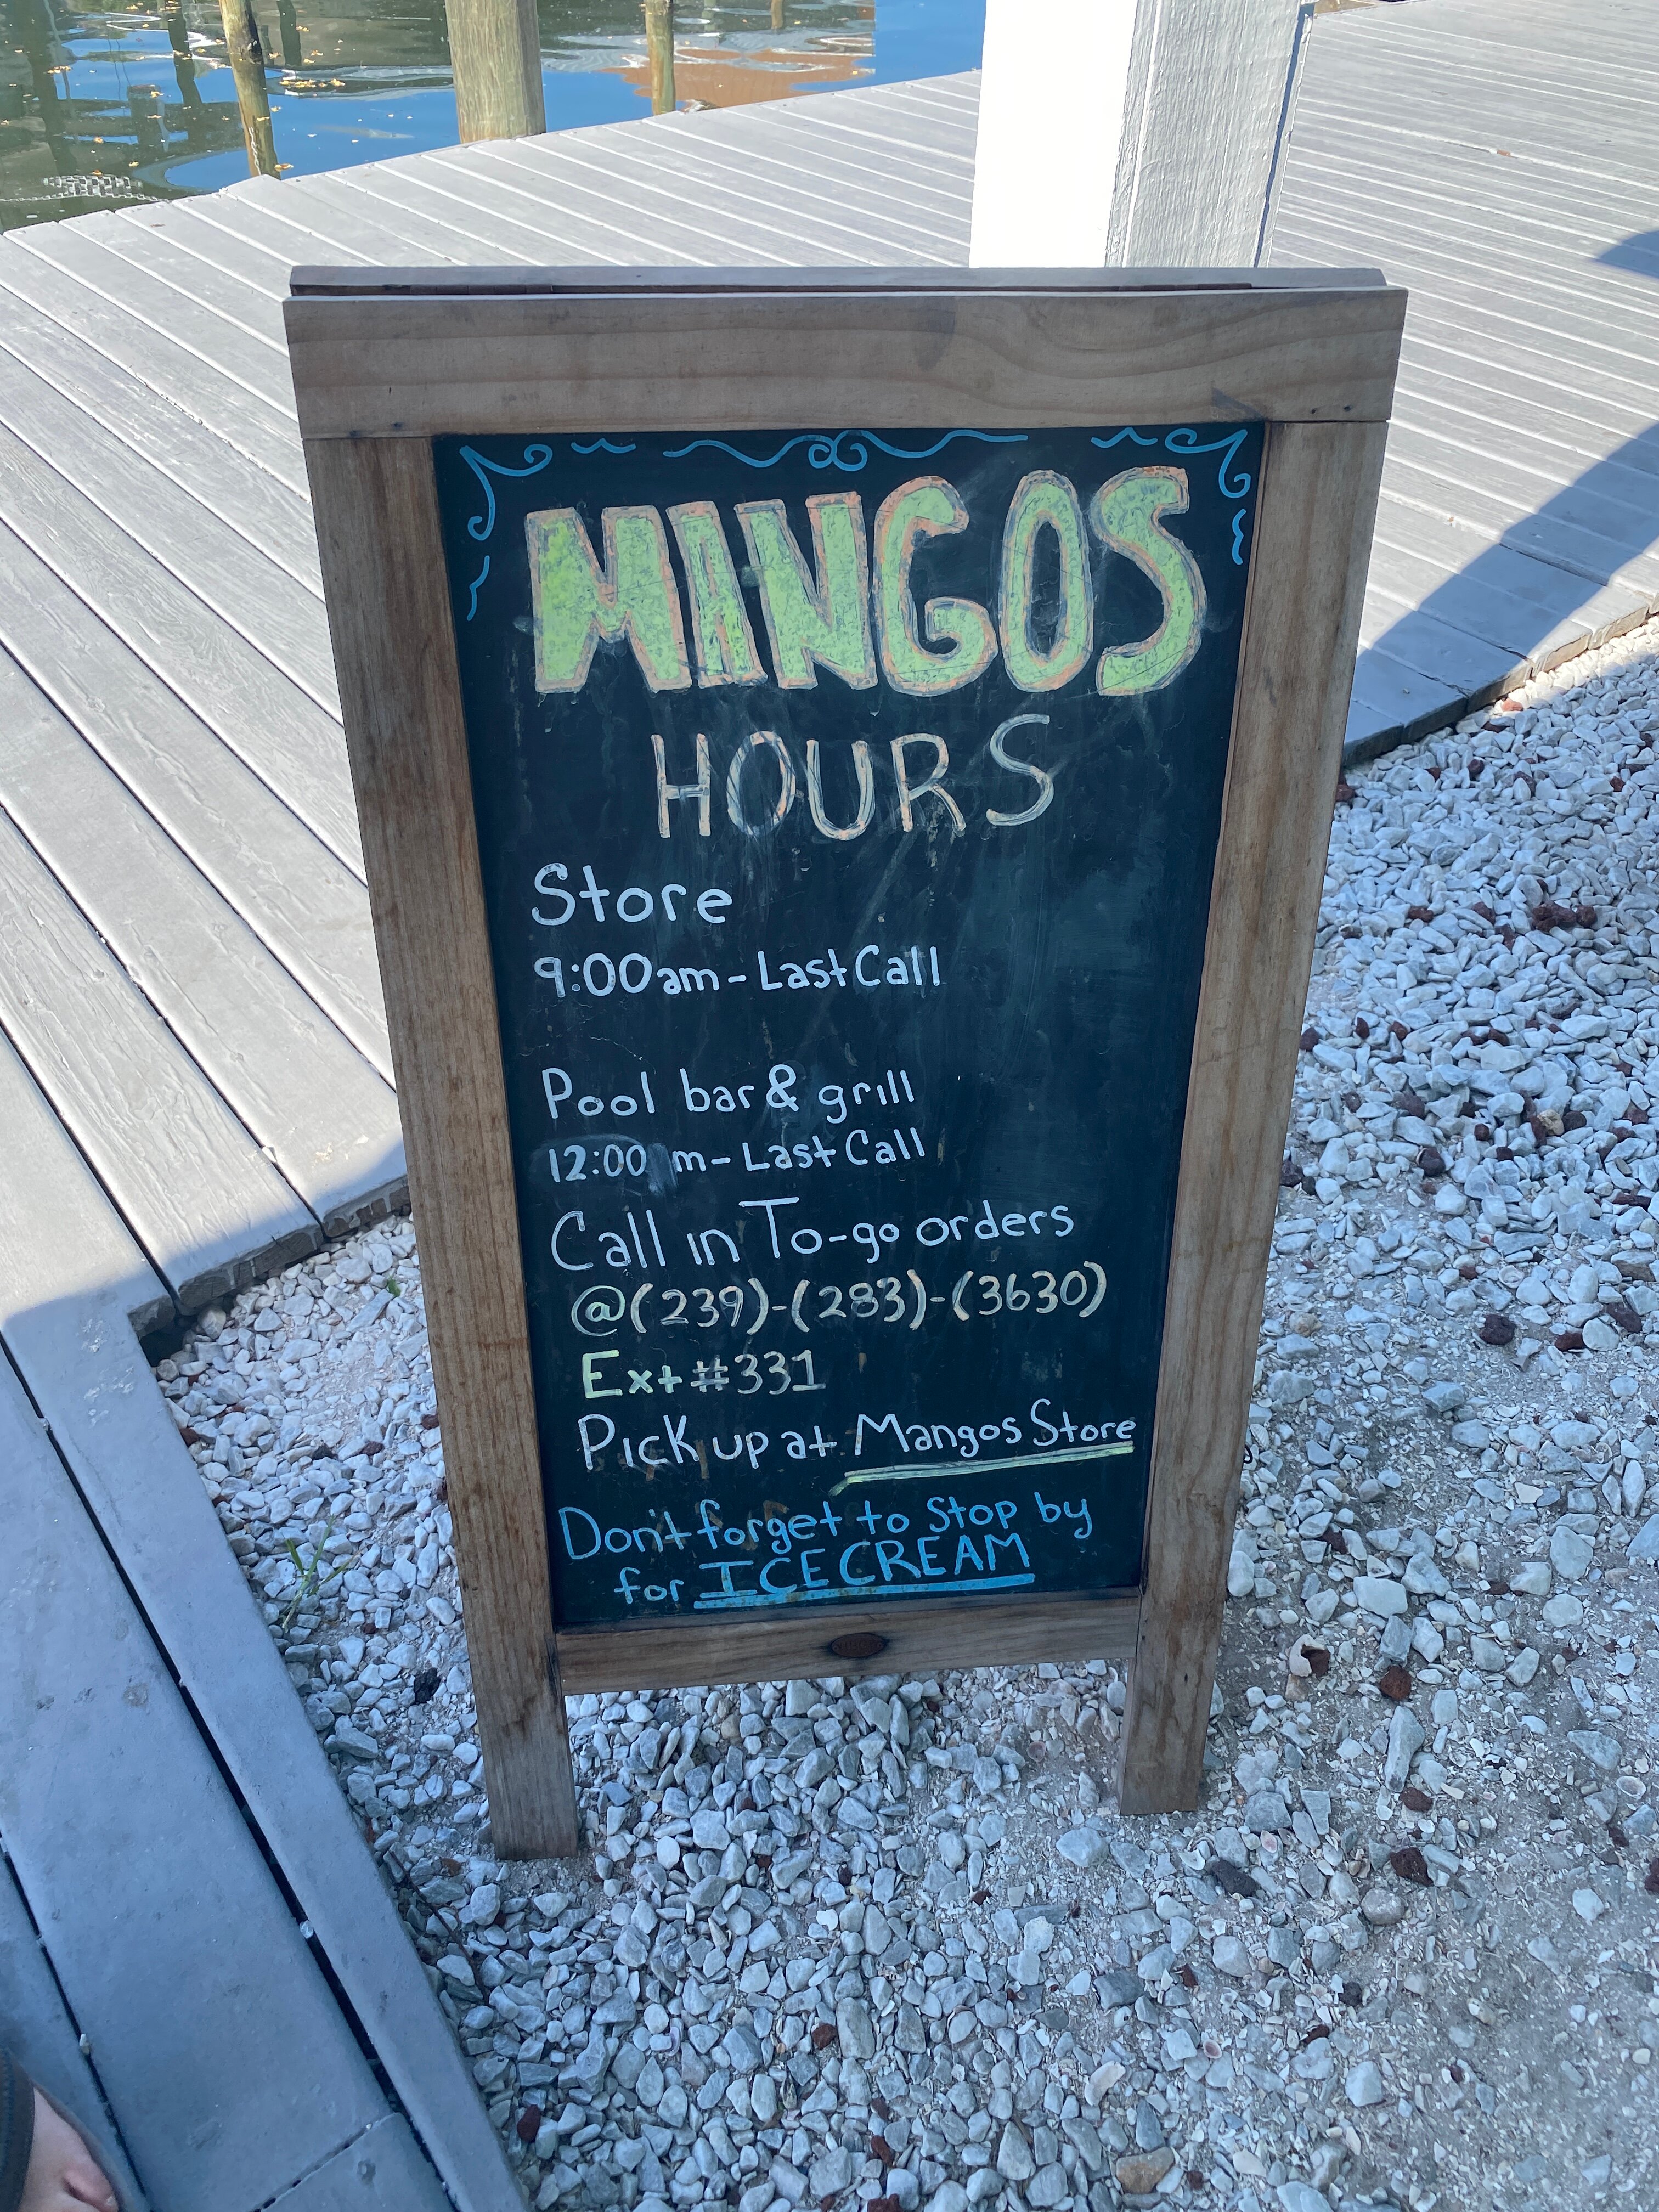 MINGOS
HOURS
Store
9:00am - Last Call
Pool bar & grill
12:00 m - Last Call
Call in To-go orders
@(239)-(283)-(3630)
Ext #331
Pick up at Mangos Store
Don't forget to stop by
for ICE CREAM